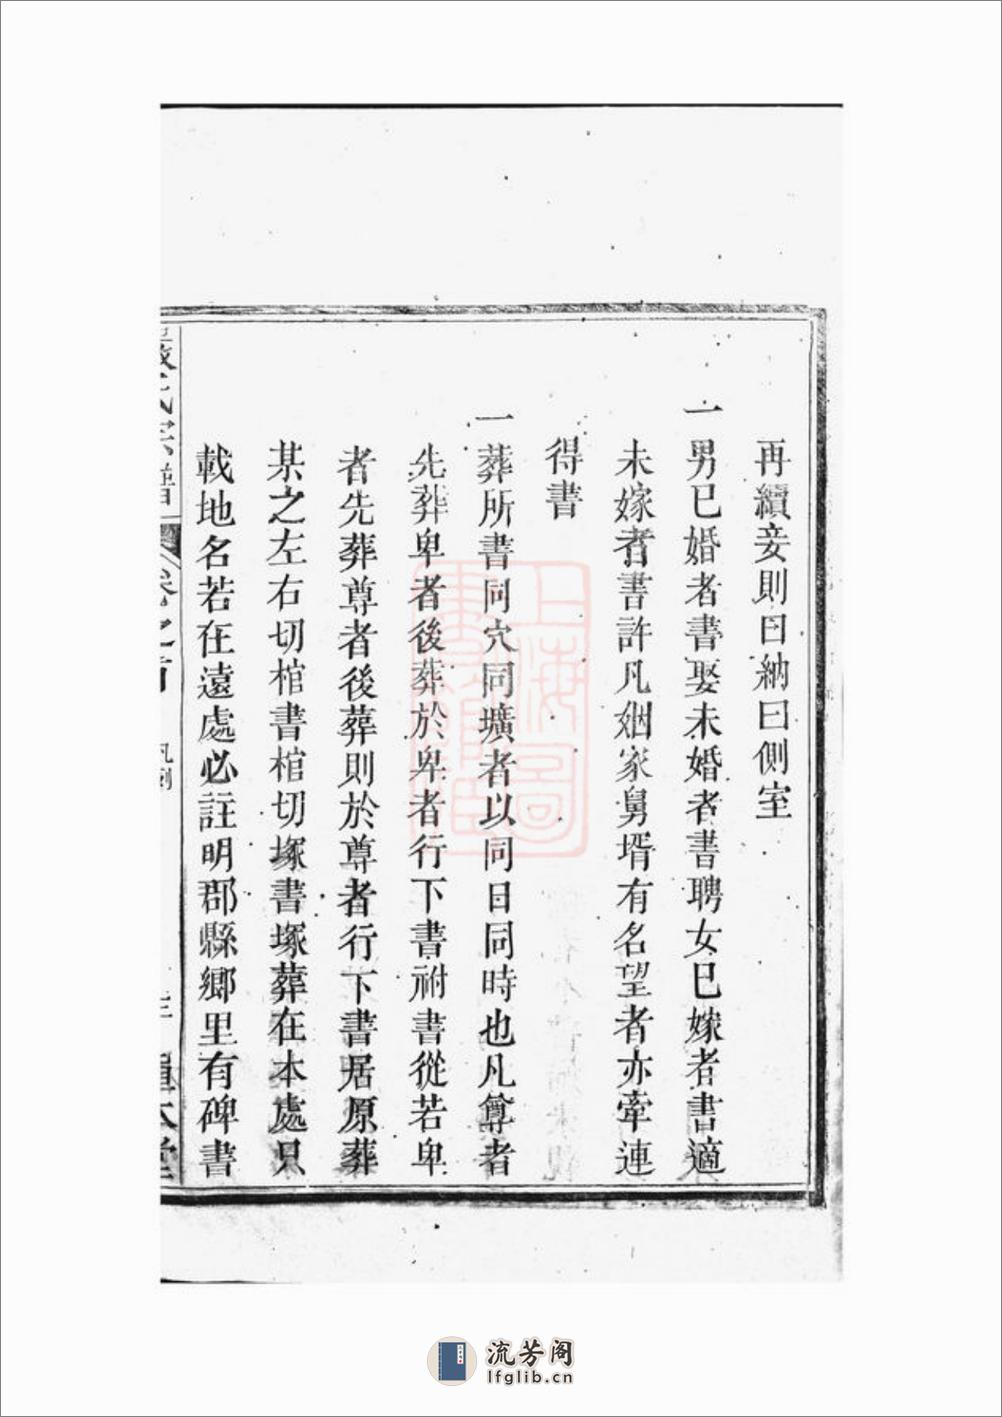 再續妾則曰納曰側室
一男已婚者書娶未婚者書聘女已嫁者書適
未嫁者書許凡姻家舅壻有名望者亦牽連
得書
一葬所書同穴同壙者以同日同時也凡尊者
先葬卑者後葬於卑者行下書祔書從若卑
者先葬尊者後葬則於尊者行下書居原葬
某之左右切棺書棺切塚書塚葬在本處只
載地名若在遠處必註明郡縣鄉里有碑書
氏宗譜
卷之首
凡例
本堂
上海圖書館藏
流芳阁
lfglib.cn